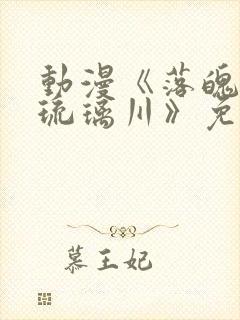 動漫《落魄
琉璃川》免
慕王妃